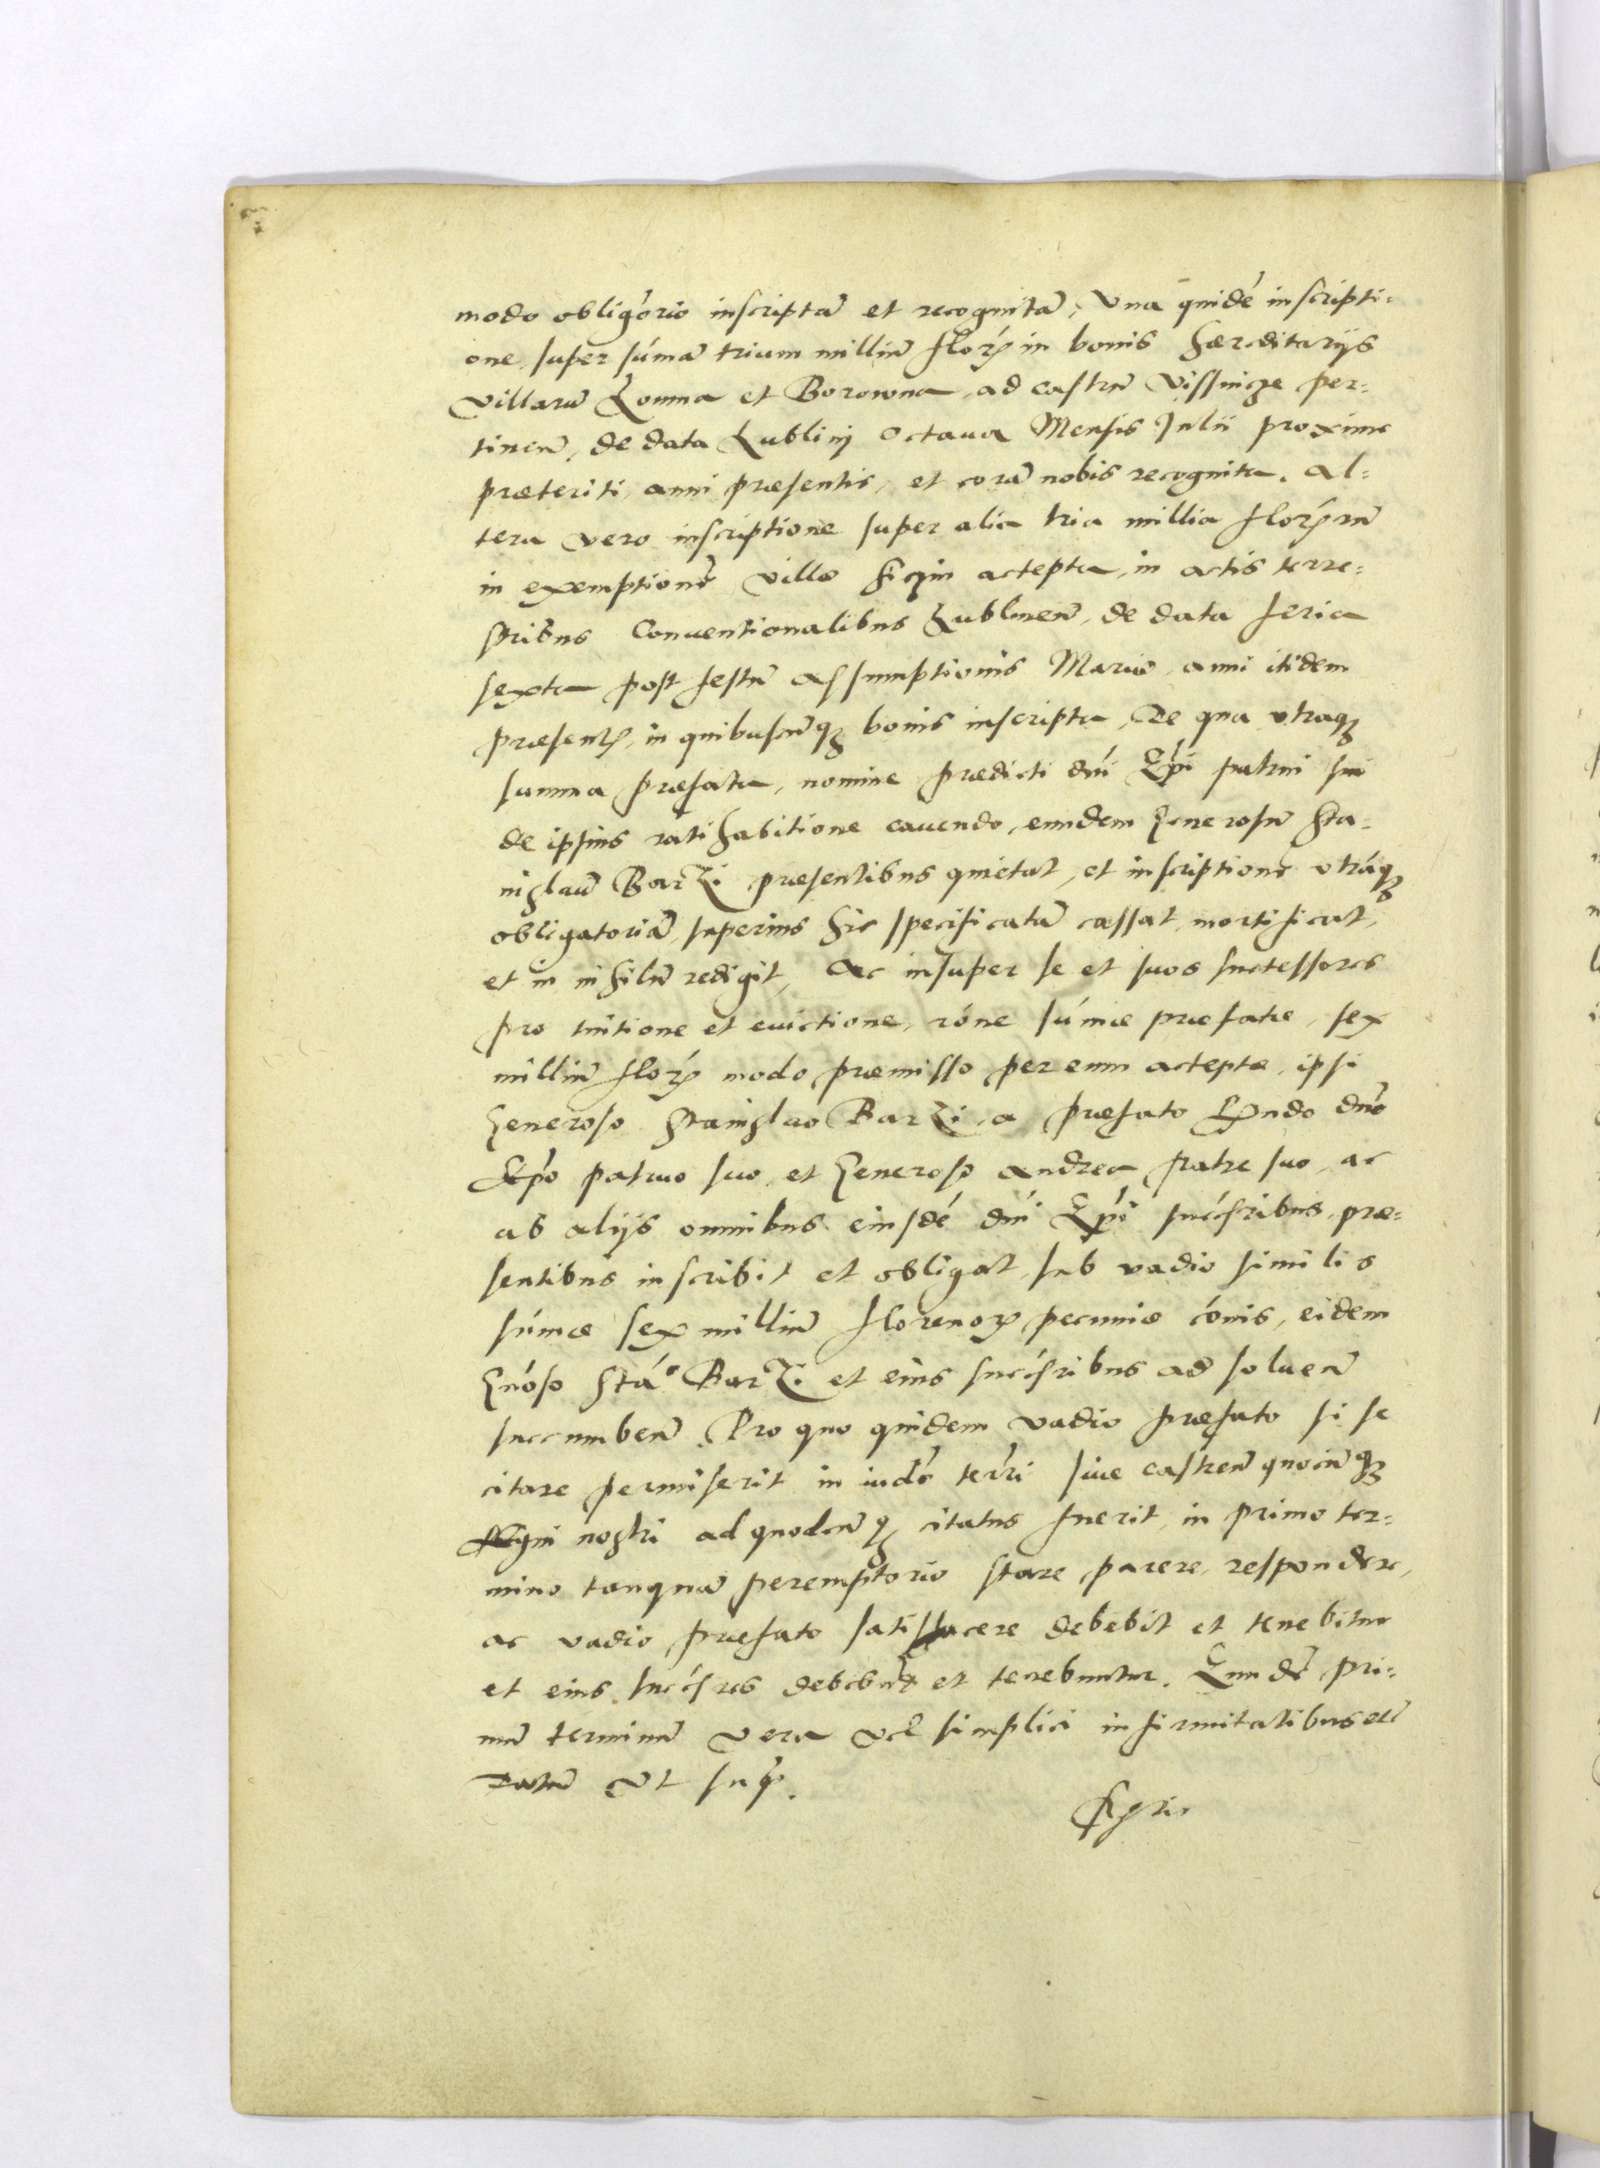 modo obligório inscriptã et recognitã, Vna quidẽ inscripti-
one super súmã trium milliũ florꝝ in bonis hæreditarijs
Villarũ Lomna et Borowna, ad castrũ Vissnicze per-
tineñ, de data Lublinj octaua Mensis Julii proxime
præteriti, anni præsentis, et corã nobis recognita. Al-
tera vero inscriptione super alia tria millia florꝝum
in exemptionẽ villæ accepta, in actis terre-
stribus Conuentionalibus Lublineñ, de data feria
sexta post festũ Assumptionis Mariæ, anni itidem
præsentꝭ, in quibuscũqꝫ bonis inscripta, De qua vtraqꝫ
summa præfata, nomine prædicti dñi Epĩ patrui sui
de ipsius ratihabitione cauendo, eundem Generosũ Sta-
nislaũ Barzi præsentibus quietat, et inscriptionẽ vtráqꝫ
obligatoriã, superius hic specificatã cassat, mortificat,
et in nihilũ redigit, Ac insuper se et suos successores
pro tuitione et euictione, róne súmæ præfatæ, sex
milliũ florꝝ modo præmisso per eum acceptæ, ipsi
Generoso Stanislao Barzi, a præfato Rñdo dño
Epõ patruo suo, et Generoso Andrea fratre suo, ac
ab alijs omnibus eiusdẽ dñi Epĩ succ̃sribus, præ-
sentibus inscribit et obligat sub vadio similis
súmæ sex milliũ florenoꝝ pecuniæ cónis, eidem
Gnóso Stã° Barzi et eius succ̃sribus ad solueñ
succumbeñ. Pro quo quidem vadio præfato si se
citare permiserit in iudẽ terrĩ siue castreñ quocũqꝫ
Regni nostri ad quodcũqꝫ citatus fuerit, in primo ter-
mino tanquã peremptorio stare parere, respondere,
ac vadio præfato satisfacere debebit et tenebitur
et eius succ̃sres debebũt et tenebuntur. Eundẽ pri-
mũ terminũ vera vel simplici infirmitatibus etc̃
Datũ Vt supr̃.